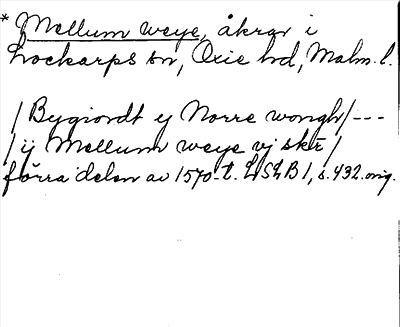 * J Mellum weye, åkrar i
Lockarps sn, Oxie hd, Malm. l.
/ Bygiordt ey Norre wongh / ---
/ ij Mellum weye vj skr /
förra delen av 1570-t. LSLB 1, s. 432. orig.